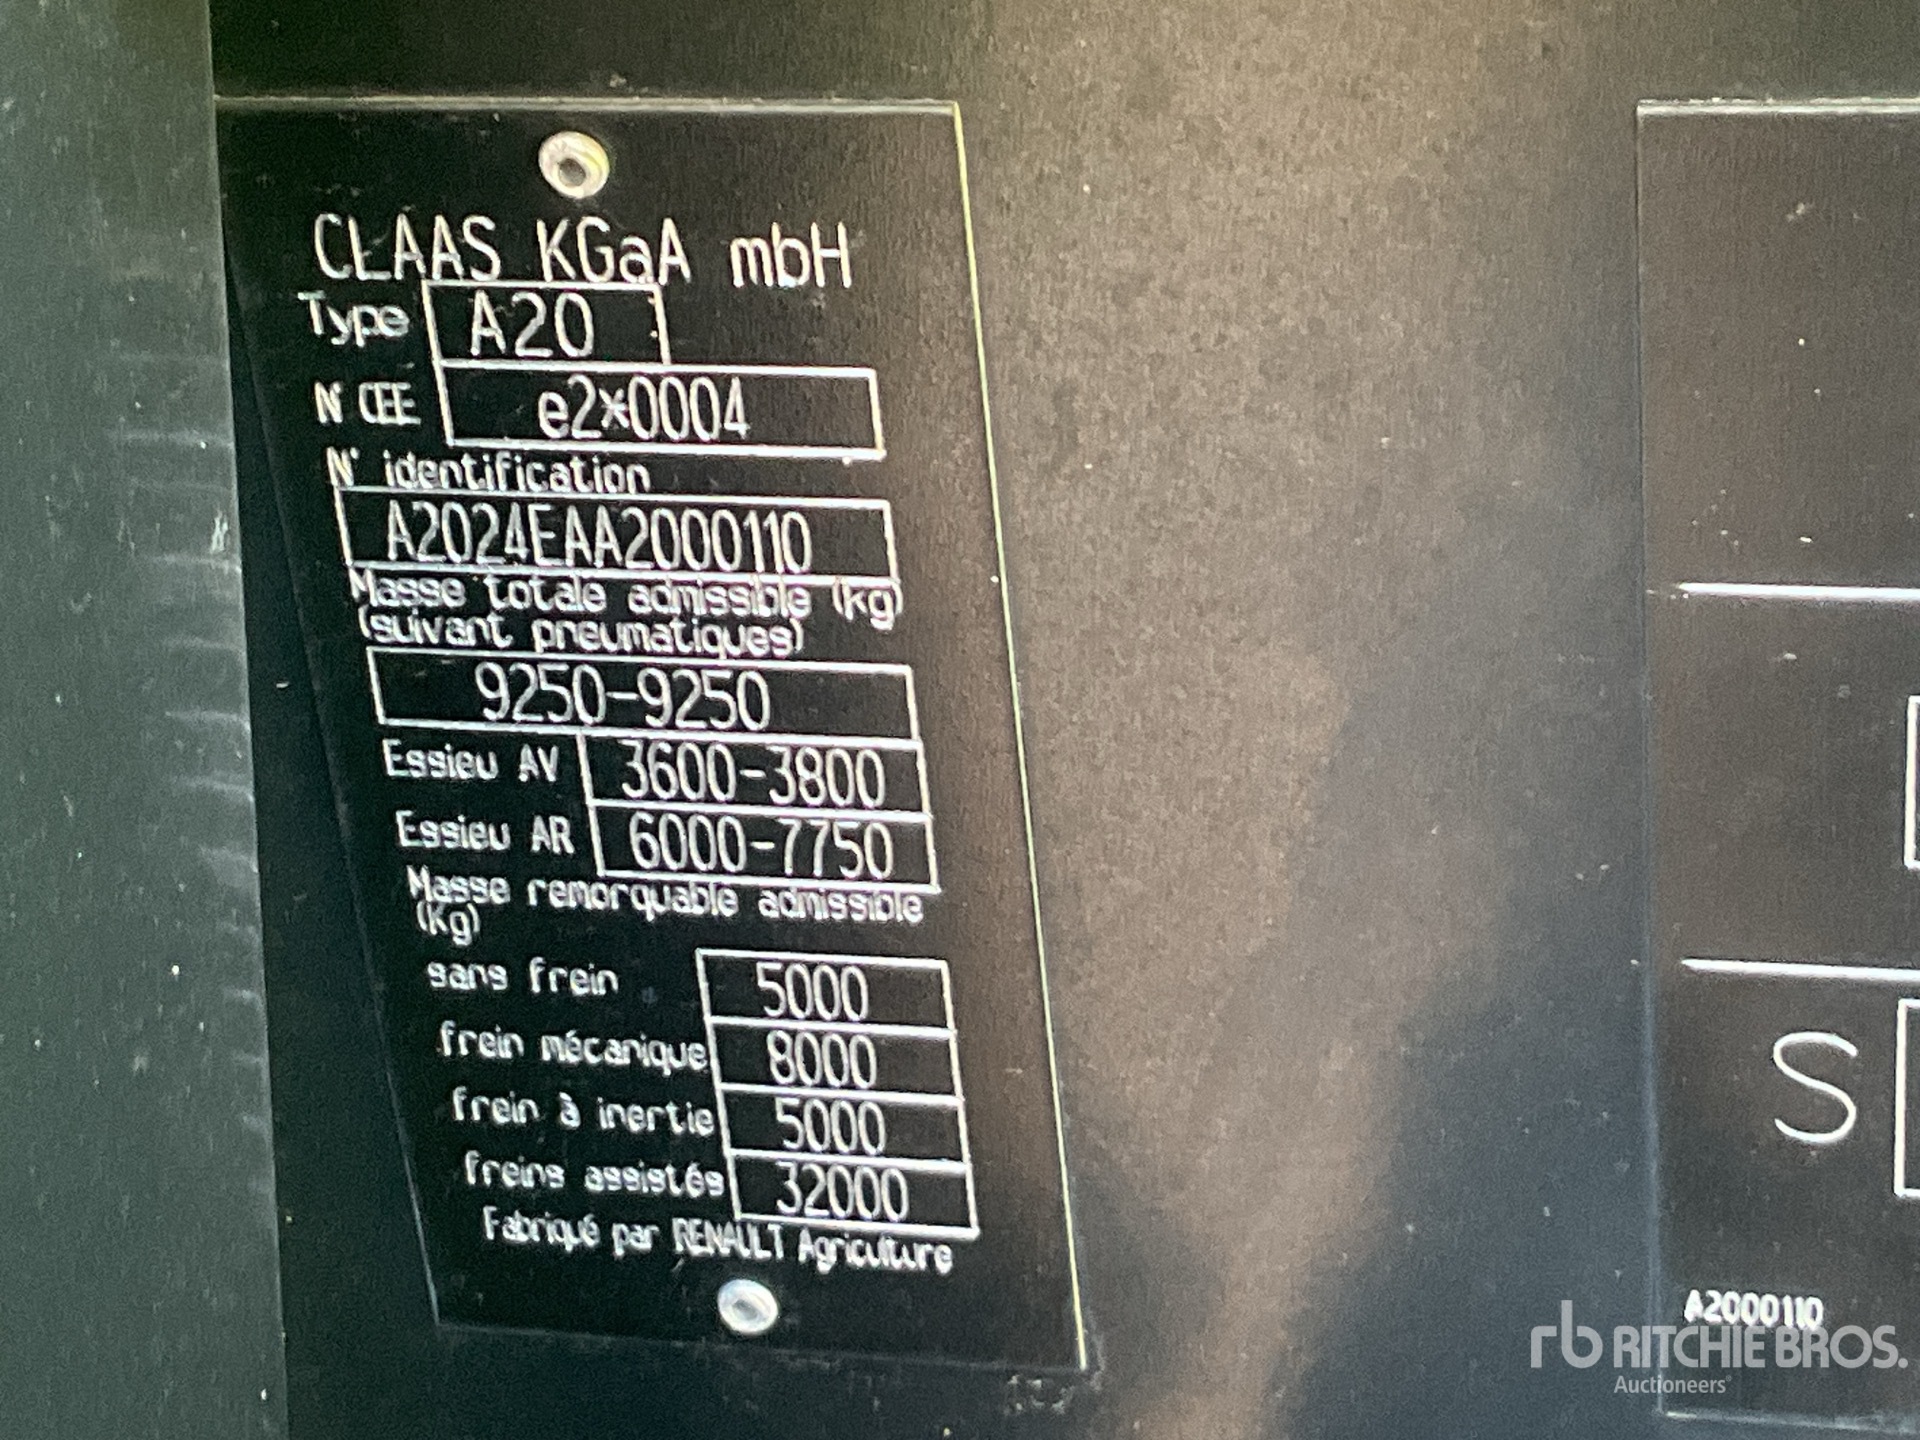 CLAAS KGaA mbH
Type A20
N° CEE e2*0004
N° identification
A2024EAA2000110
Masse totale admissible (kg)
(suivant pneumatiques)
9250-9250
Essieu AV 3600-3800
Essieu AR 6000-7750
Masse remorquable admissible
(Kg)
sans frein 5000
frein mécanique 8000
frein à inertie 5000
freins assistés 32000
Fabriqué par RENAULT Agriculture
S
A2000110
rb RITCHIE BROS.
Auctioneers